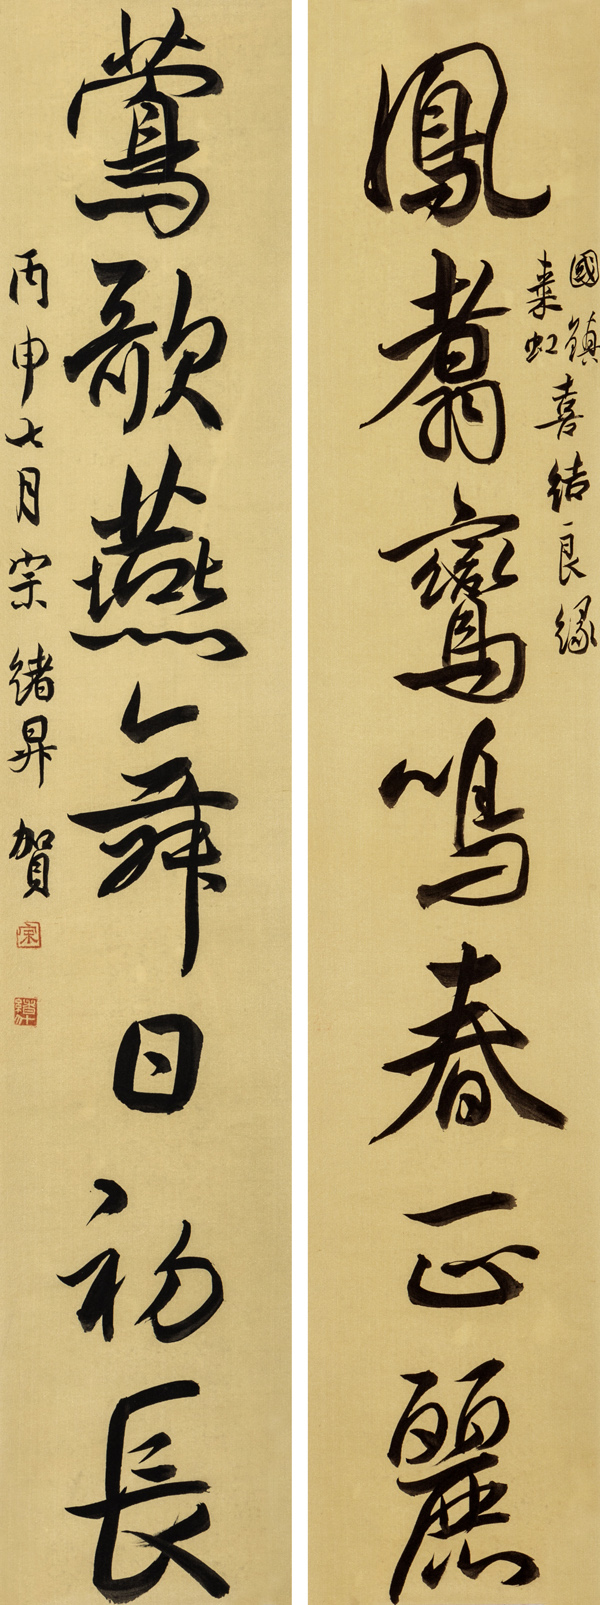 國鎮
喜結良緣
鳳翥鸞鳴春正麗
鶯歌燕舞日初長
丙申七月宗緒昇賀